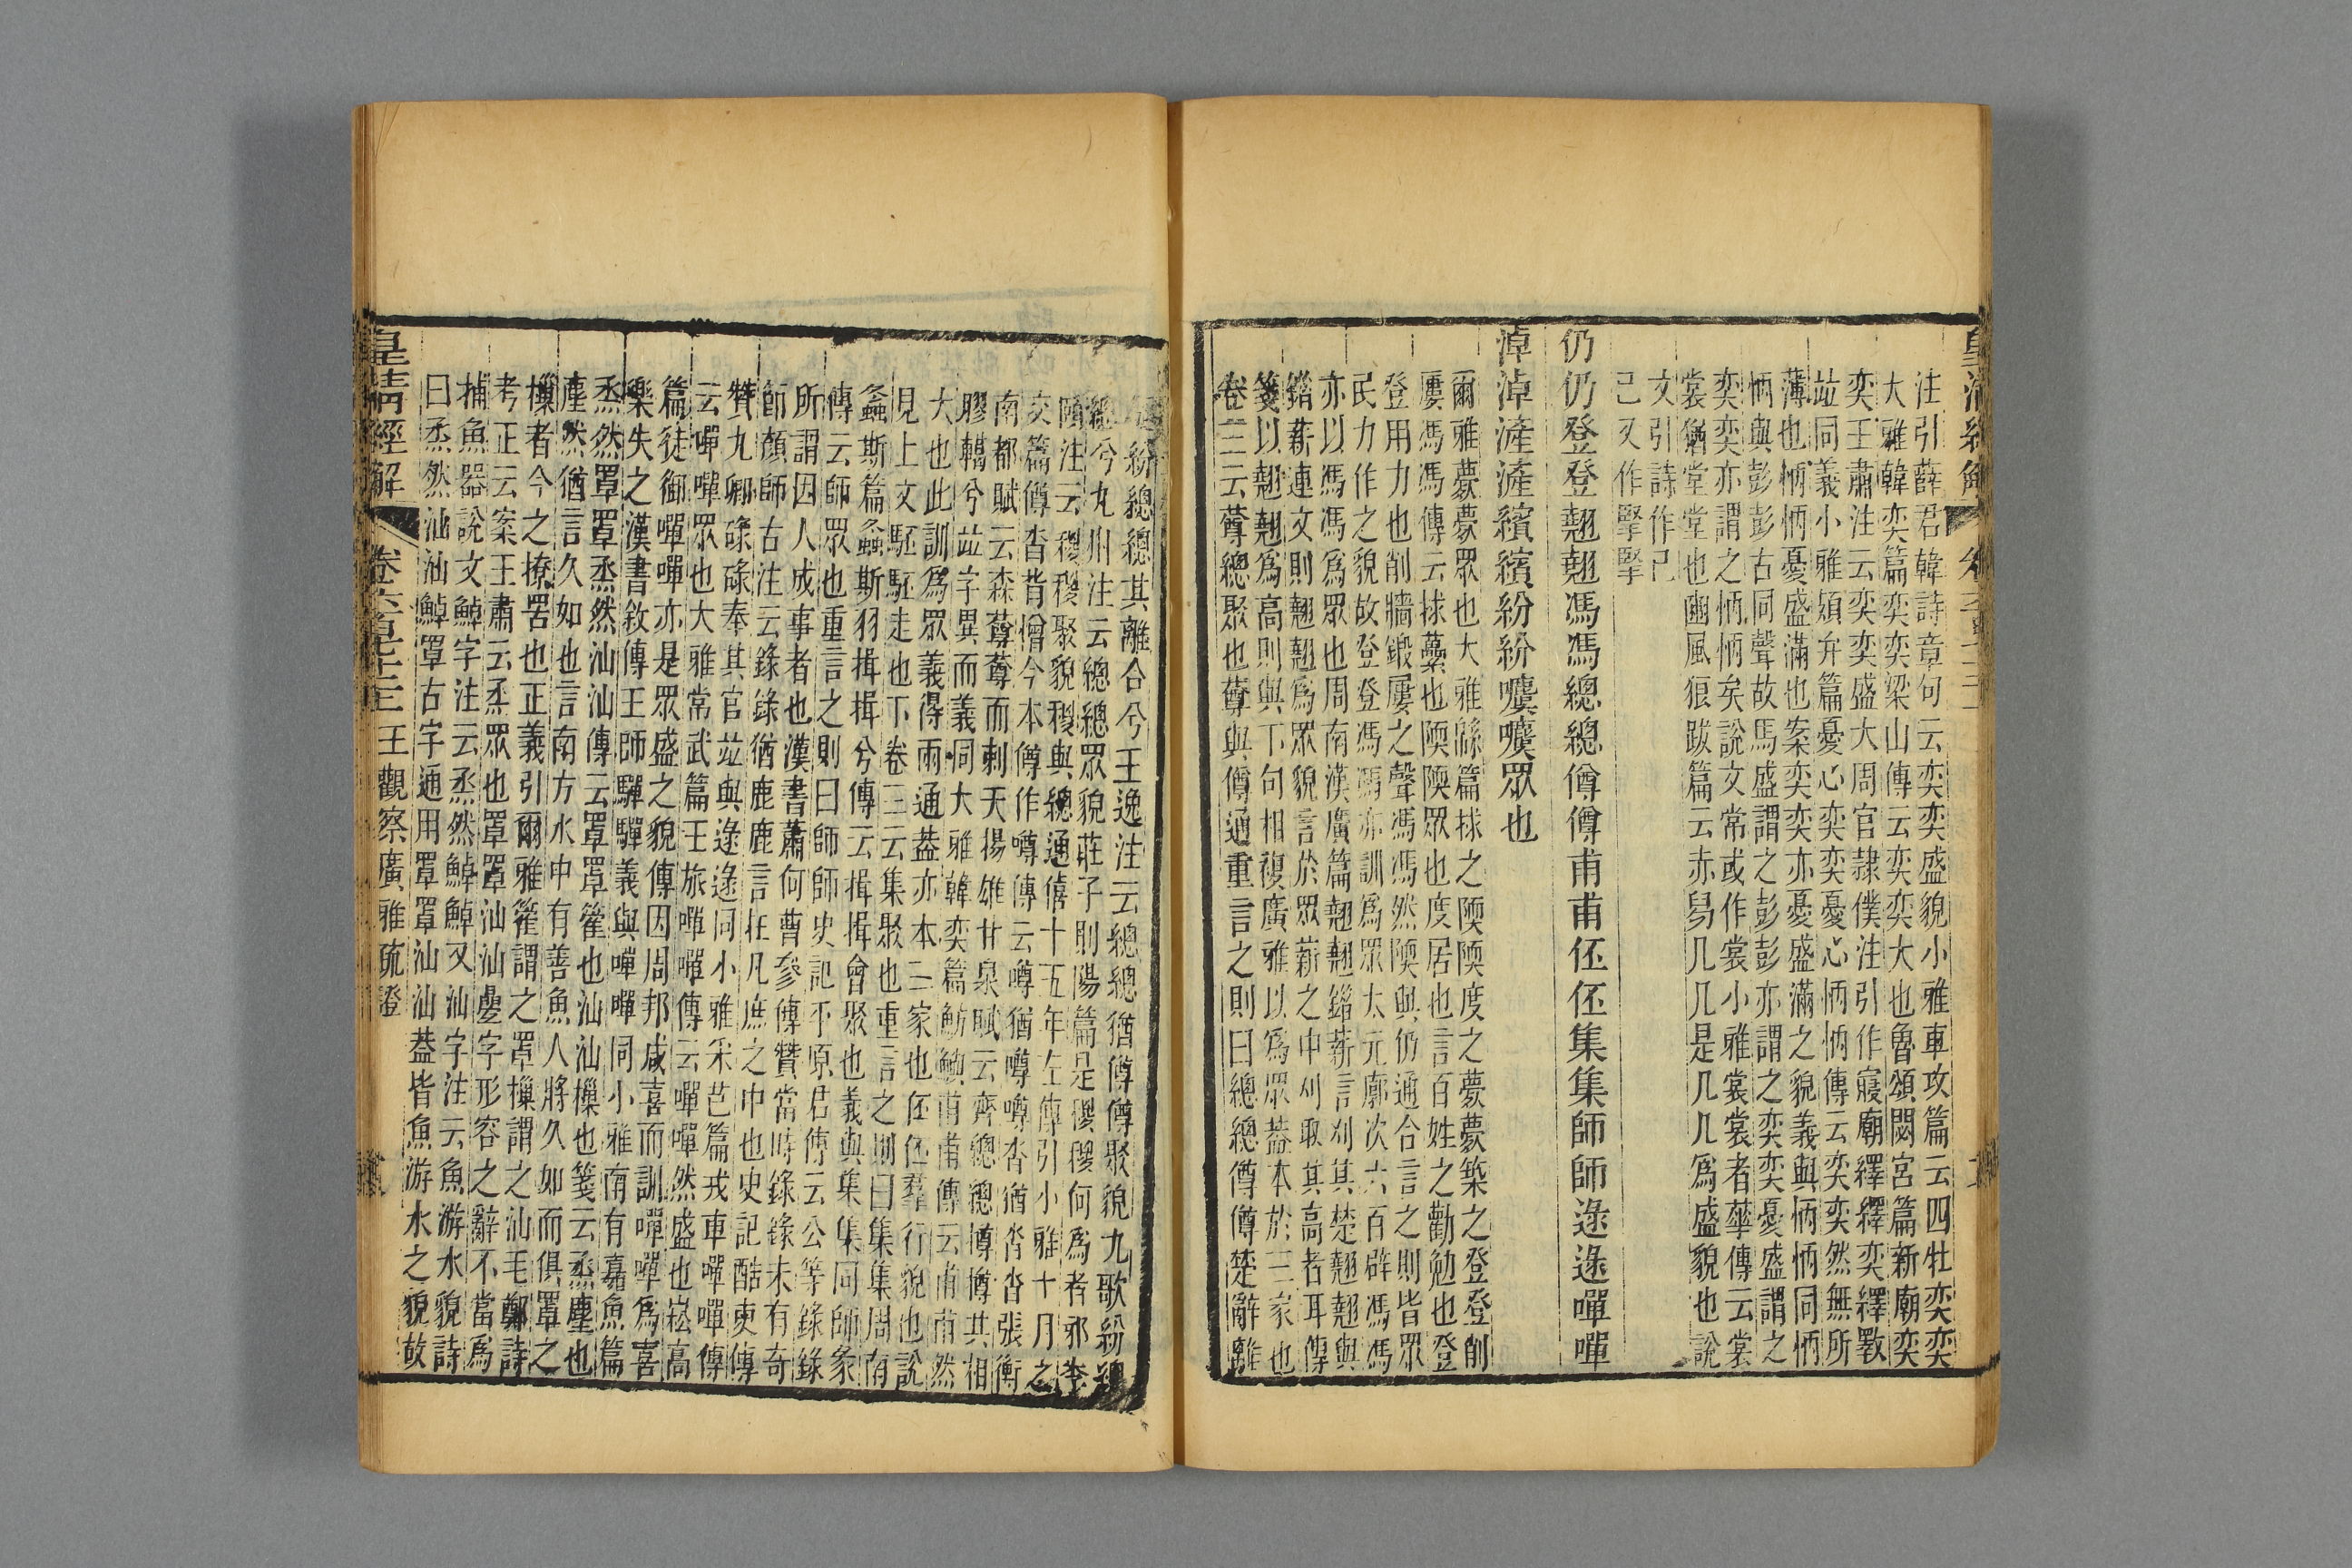 皇清經解
注引薛君韓詩章句云奕奕盛貌小雅車攻篇云四牡奕奕
大雅韓奕篇奕奕梁山傳云奕奕大也魯頌閟宮篇新廟奕
奕王肅注云奕奕盛大周官隸僕注引作寢廟繹繹奕繹斁
竝同義小雅頍弁篇憂心奕奕憂心怲怲傳云奕奕然無所
薄也怲怲憂盛滿也案奕奕亦憂盛滿之貌義與怲怲同怲
怲與彭彭古同聲故馬盛謂之彭彭亦謂之奕奕憂盛謂之
奕奕亦謂之怲怲矣說文常或作裳小雅裳裳者華傳云裳
裳猶堂堂也豳風狼跋篇云赤舄几几是几几爲盛貌也說
文引詩作己
己又作掔掔
仍仍登登翹翹馮馮總總僔僔甫甫伾伾集集師師逯逯嘽嘽
淖淖滻滻繽繽紛紛嚝嚝眾也
爾雅薨薨眾也大雅緜篇捄之陾陾度之薨薨築之登登削
屢馮馮傳云捄虆也陾陾眾也度居也言百姓之勸勉也登
登用力也削牆鍛屢之聲馮馮然陾與仍通合言之則皆眾
民力作之貌故登登馮馮亦訓爲眾太元廓次六百辟馮馮
亦以馮馮爲眾也周南漢廣篇翹翹錯薪言刈其楚翹翹與
錯薪連文則翹翹爲眾貌言於眾薪之中刈取其高者耳傳
箋以翹翹爲高則與下句相複廣雅以爲眾蓋本於三家也
卷三云蓴總聚也蓴與僔通重言之則曰總總僔僔楚辭離
紛總總其離合兮王逸注云總總猶僔僔聚貌九歌紛總
總兮九州注云總總眾貌莊子則陽篇是稯稯何爲者邪李
頤注云稯稯聚貌稯與總通僖十五年左傳引小雅十月之
交篇僔沓背憎今本僔作噂傳云噂猶噂噂沓猶沓沓張衡
南都賦云森蓴蓴而刺天揚雄甘泉賦云齊總總撙撙其相
膠轕兮竝字異而義同大雅韓奕篇魴鱮甫甫傳云甫甫然
大也此訓爲眾義得兩通蓋亦本三家也伾伾羣行貌也說
見上文駓駓走也下卷三云集聚也重言之則曰集集周南
螽斯篇螽斯羽揖揖兮傳云揖揖會聚也義與集集同師彖
傳云師眾也重言之則曰師師史記平原君傳云公等錄錄
所謂因人成事者也漢書蕭何曹參傳贊當時錄錄未有奇
節顏師古注云錄錄猶鹿鹿言在凡庶之中也史記酷吏傳
贊九卿碌碌奉其官竝與逯逯同小雅采芑篇戎車嘽嘽傳
云嘽嘽眾也大雅常武篇王旅嘽嘽傳云嘽嘽然盛也崧高
篇徒御嘽嘽亦是眾盛之貌傳因周邦咸喜而訓嘽嘽爲喜
樂失之漢書敘傳王師驒驒義與嘽嘽同小雅南有嘉魚篇
烝然罩罩烝然汕汕傳云罩罩籗也汕汕樔也箋云烝塵也
塵然猶言久如也言南方水中有善魚人將久如而俱罩之
樔者今之撩罟也正義引爾雅籗謂之罩樔謂之汕毛鄭詩
考正云案王肅云烝眾也罩罩汕汕疊字形容之辭不當爲
捕魚器說文鯙字注云烝然鯙鯙又汕字注云魚游水貌詩
曰烝然汕汕鯙罩古字通用罩罩汕汕蓋皆魚游水之貌故
皇清經解 王觀察廣雅疏證